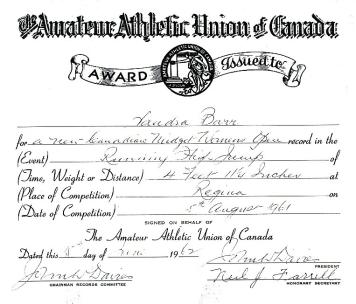 The Amateur Athletic Union of Canada
AWARD Issued to
Sandra Barr
for a new Canadian Midget Womens Open record in the
(Event) Running High Jump of
(Time, Weight or Distance) 4 Feet 11¼ Inches at
(Place of Competition) Regina on
(Date of Competition) 5th August 1961
SIGNED ON BEHALF OF
The Amateur Athletic Union of Canada
Dated this day of 1962
PRESIDENT
CHAIRMAN RECORDS COMMITTEE
Neil J. Farrell
HONORARY SECRETARY